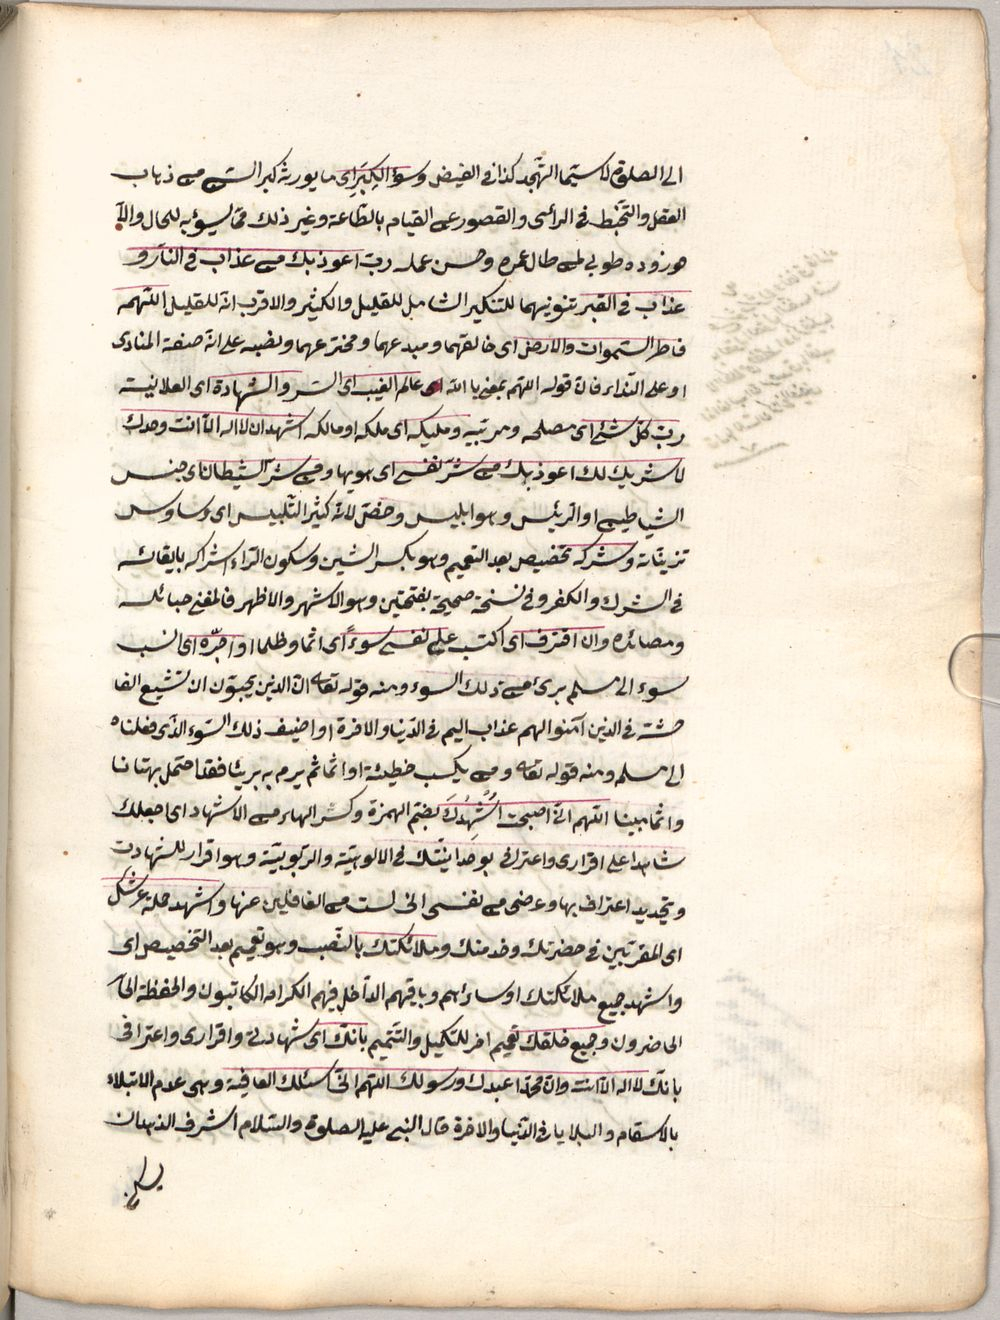 الى الصلوة لا سيّما التهّجد كذا فى الفيض وسوء الكِبَرِ اى ما يورثه كبر السّن من ذهاب
العقل والتخبّط فى الرائى والقصور عن القيام بالطّاعة وغير ذلك ممّا يسوُء به للحال والآ
طوبى لمن طال عمره وحسن عمله ربّ اعوذ بك من عذاب فى النّار و
عذاب فى القبر تنوينهما للتنكير الشامل للقليل والكثير والاقرب انه للقليل اللّهمّ
فاطر السّموات والارض اى خالقهما ومبدعهما ومخترعهما ونصبه على انّه صفة المنادى
او على النّداء فانّ قوله اللّهم بمعنى يا اللّه عالم الغيب اى السّر والشّهادة اى العلانيّة
ربّ كلّ شئ اى مصلحه ومربّيه ومليكه اى ملكه او مالكه اشهد ان لا اله الّا انت وحدك
لا شريك لك اعوذ بك من شرّ نفسى اى هويها ومن شرّ الشّيطان اى جنس
الشياطين او الرئيس وهو ابليس وخصّ لانّه كثير التّلبيس اى وساوس
تزيّناته وشركه تخصيص بعد التعميم وهو بكسر الشين وسكون الرّاء اشراكه بايقائه
فى الشرك والكفر وفى نسخة صحيحة بفتحتين وهو الاشهر والاظهر فالمعنى حبائله
ومصائده وان اقترف اى اكتسب على نفسى سوءًا اى اثما وظلما او اجرّه اى انسب
سوء الى مسلم برئ من ذلك السوء ومنه قوله تعا انّ الذين يحبّون ان تشيع الفا
حشة فى الذين آمنوا لهم عذاب اليم فى الدّنيا والآخرة او اضيف ذلك السّوء الّذى فعلناه
الى مسلم ومنه قوله تعا ومن يكسب خطيئة او اثما ثم يرم به بريئا فقد احتمل بهتانا
واثما مبينا اللّهم انّى اصبحت اُشْهِدُكَ بضمّ الهمزة وكسر الهاء من الاشهاد اى اجعلك
شاهدا على اقرارى واعترافى بوحدانيّتك فى الالوهيّة والرّبوبيّة وهو اقرار للشّهادت
وتجديد اعتراف بها وعرضى من نفسى انى لست من الغافلين عنها واشهد حملة عرشك
اى المقرّبين فى حضرتك وخدمتك وملائكتك بالنّصب وهو تعميم بعد التخصيص اى
واشهد جميع ملائكتك او سائرهم وباقيهم الدّاخل فيهم الكرام الكاتبون والحفظة
الحاضرون وجميع خلقك تعميم اخر للتكميل والتّتميم بانّك اى شهادتى واقرارى واعترافى
بانّك لا اله الّا انت وانّ محمّدا عبدك ورسولك اللّهم انّى اسئلك العافية وهى عدم الابتلاء
بالاسقام والبلايا فى الدّنيا والآخرة قال النّبى عليه الصلوة والسّلام اشرف